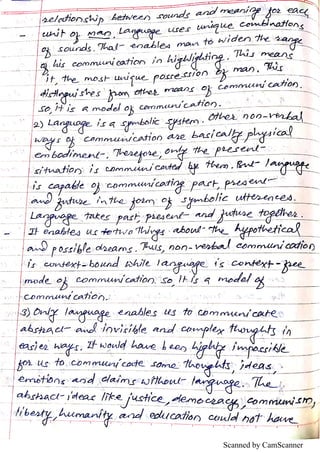 relationship between sounds and meanings for each
unit of man. Language uses unique combinations
of sounds. That enables man to widen the range
of his communication in highlighting. This means
it, the most unique possession of man. This
distinguishes from other means of communication.
so, it is a model of communication.
2) Language is a symbolic system. Other non-verbal
ways of communication are basically physical
embodiment. Therefore, only the present
situation is communicated by them. But language
is capable of communicating past, present
and future in the form of symbolic utterences.
Language takes past, present and future together.
It enables us to two things about the hypothetical
and possible dreams. Thus, non-verbal communication
is context-bound while language is context-free
mode of communication. so, it is a model of
communication.
3) Only language enables us to communicate
abstract and invisible and complex thoughts in
easier ways. It would have been highly impossible
for us to communicate some thoughts, ideas,
emotions and claims without language. The
abstract ideas like justice, democracy, communism,
liberty, humanity and education could not have
Scanned by CamScanner